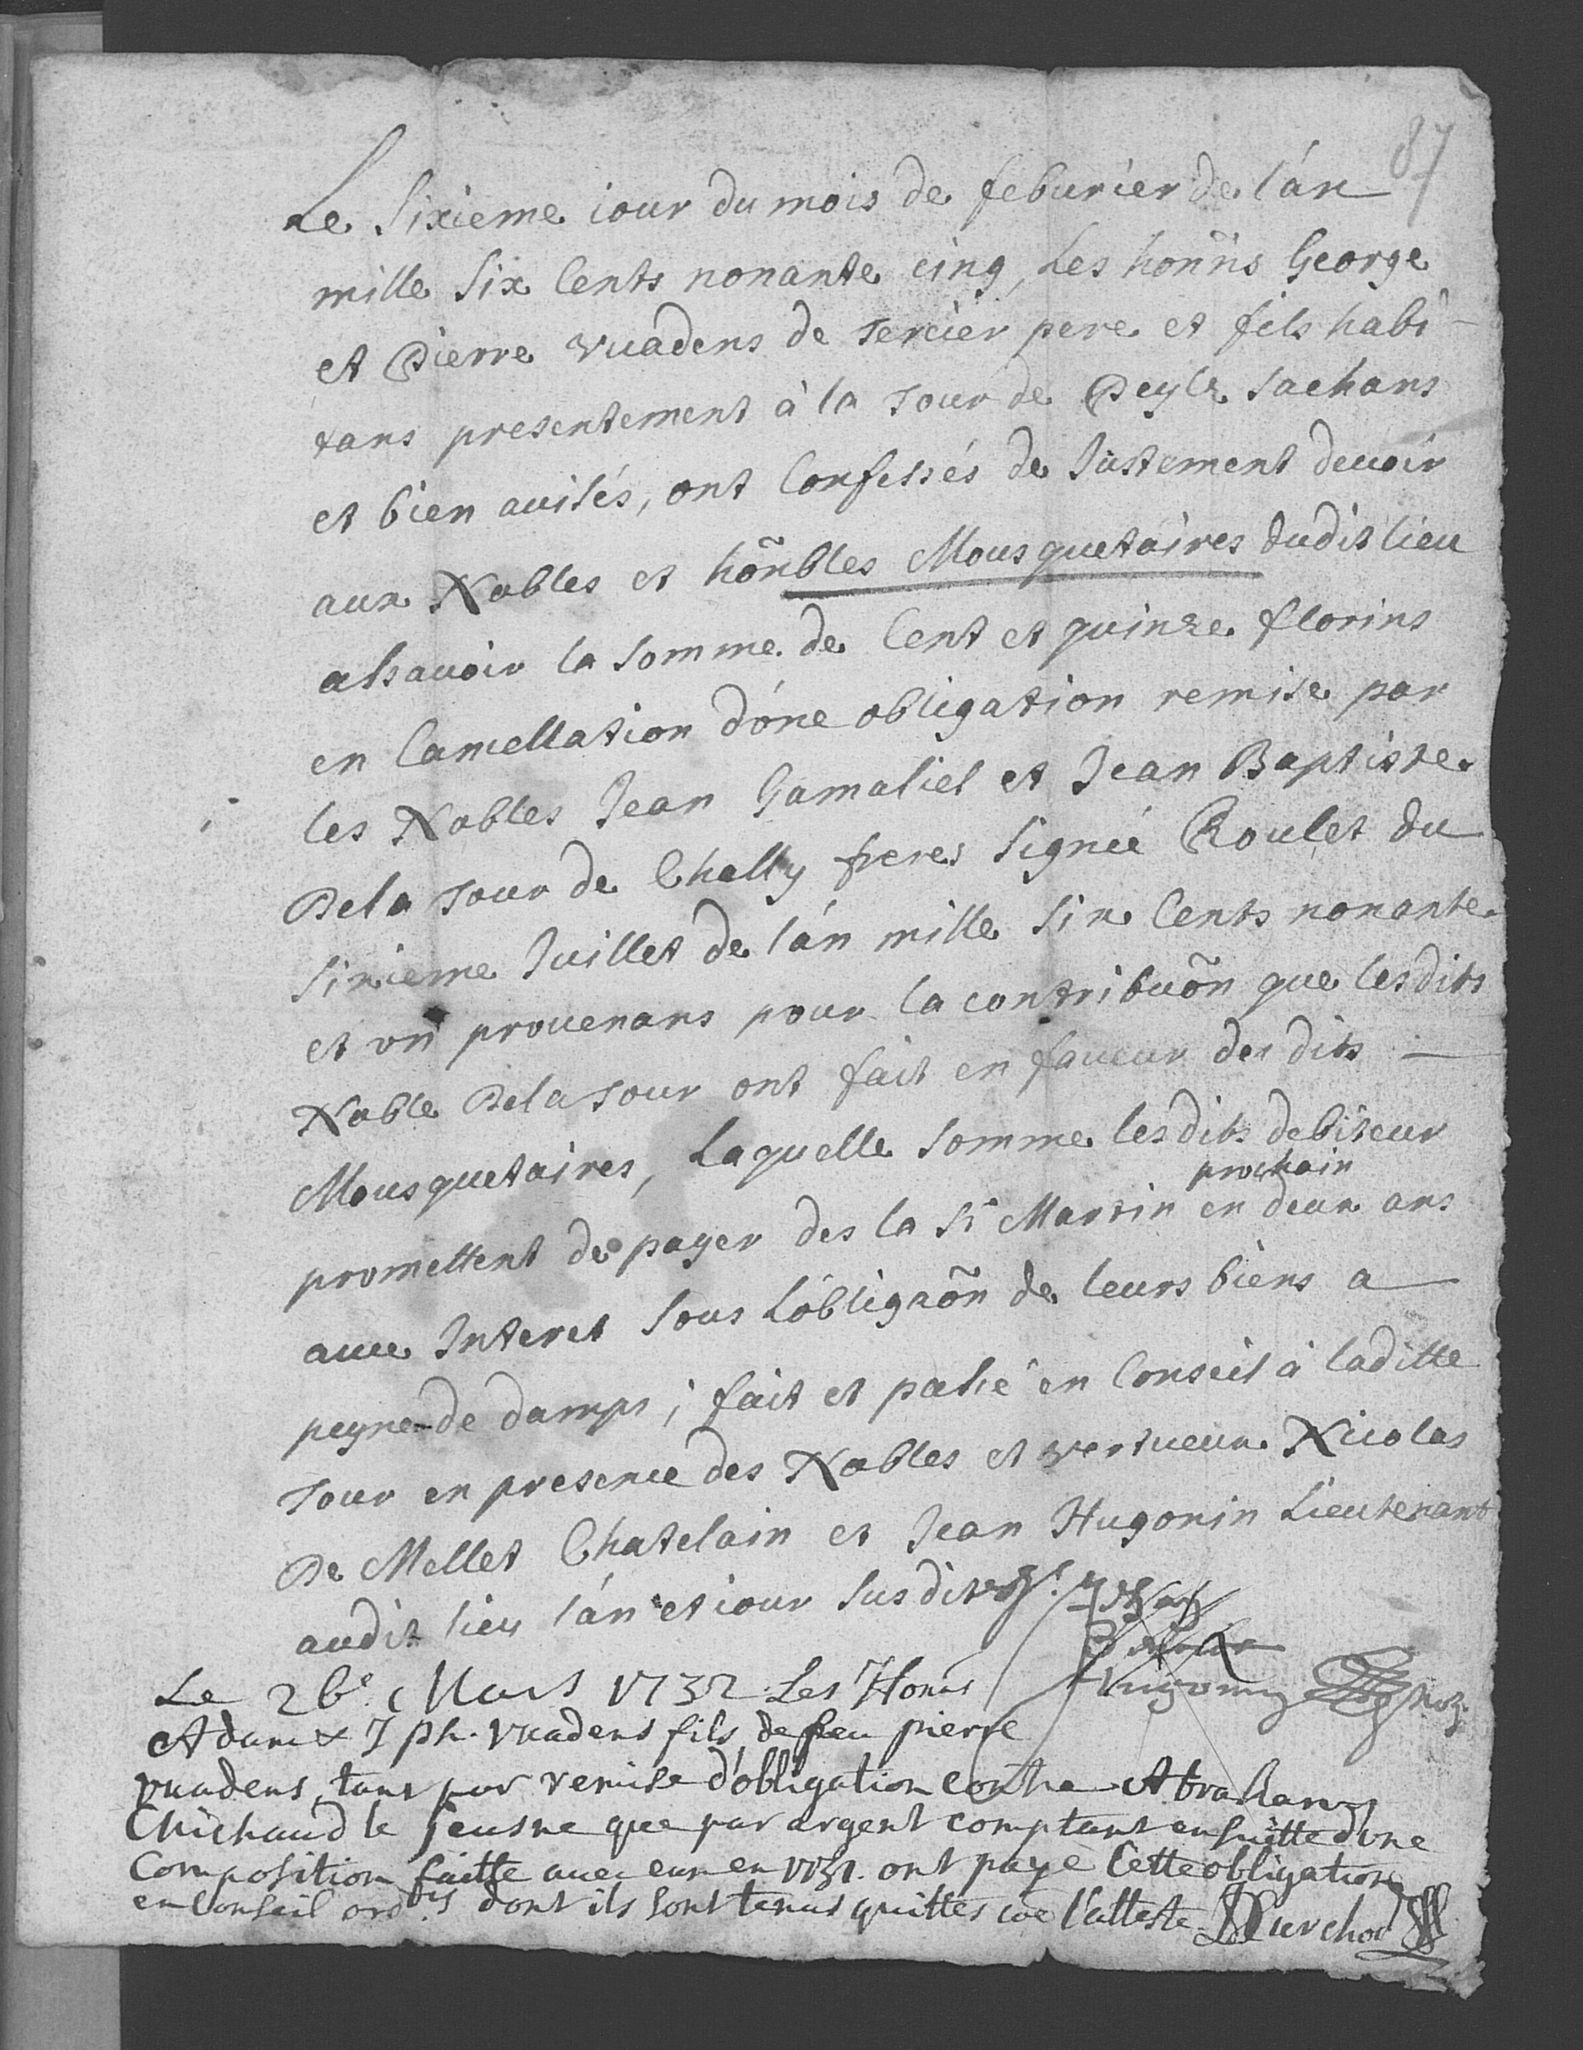 87
Le Sixieme iour du mois de feburier de l'án
mille Six Cents nonante cinq, Les hon̄s George
et Pierre Vuadens de Tercier pere et fils habi-
tans presentement à la Tour de Peylz Sachans
et bien auisés, ont Confessés de Justement deuoir
aux Nobles et hon̄bles Mousquetaires dudit lieu
assauoir la Somme de Cent et quinze florins
en Cancellation d'óne obligation remise par
les Nobles Jean Gamaliel et Jean Baptiste
De la Tour de Chally freres Signée Roulet du
Sixieme Juillet de l'án mille Six Cents nonante
et vn prouenans pour la contribuõn que lesdits
Noble De la Tour ont fait en faueur des dits
Mousquetaires, Laquelle Somme lesdits debiteur
prochain
promettent de payer des la St Martin en deux ans
auec Interet Sous L'obligaõn de leurs biens a
peyne de damps; fait et passé en Conseil à laditte
Tour en presence des Nobles et vertueux Nicolas
De Mellet Chatelain et Jean Hugonin Lieutenant
audit lieu l'án et iour Susdit
Hugonin
Le 26e. Mars 1732 Les Hon̄s
Adam & J Ph. Vuadens fils de feu pierre
Vuadens, tant par remise d'obligation contre Abraham
Chichaud le Jeusne que par argent comptant ensuitte d'vne
Composition faitte auec eux en 1731. ont paye Cette obligation
en Conseil dont ils sont tenus quittes ce l'atteste DCurchod